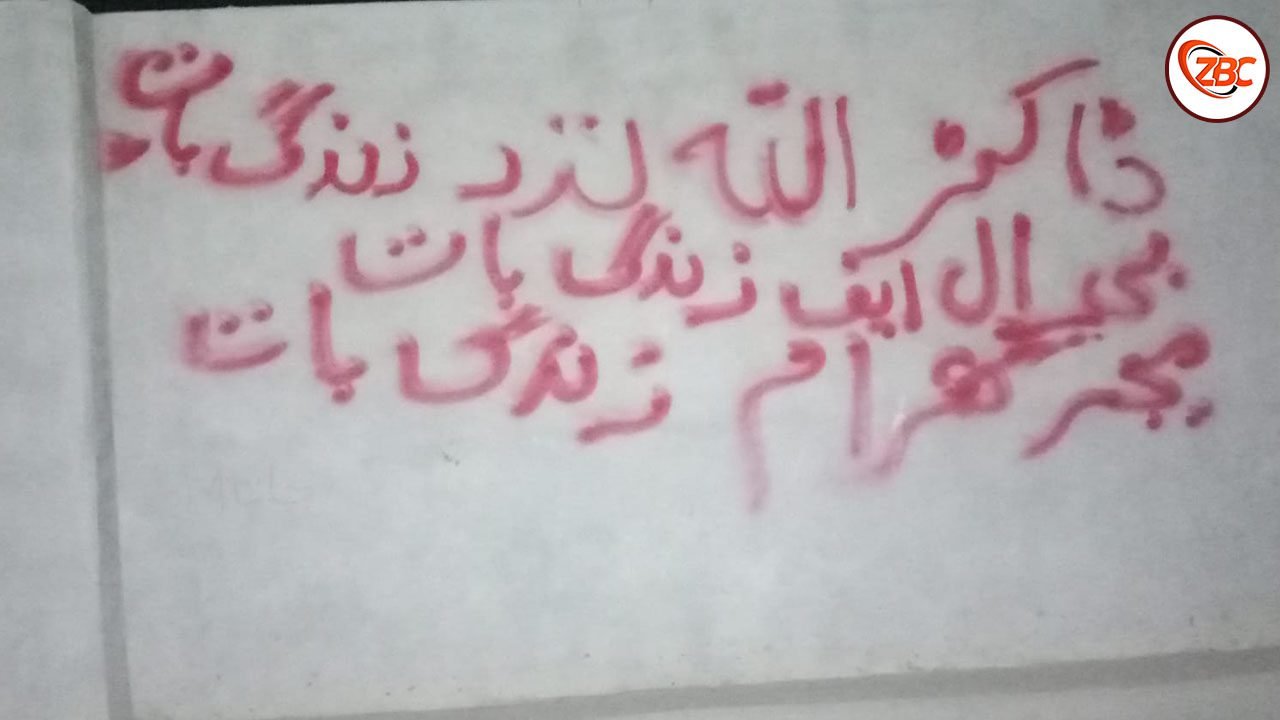 ZBC
ڈاکٹر اللہ نذر زندگ بات
بی ایل ایف زندگ بات
میجر گہرام زندگ بات